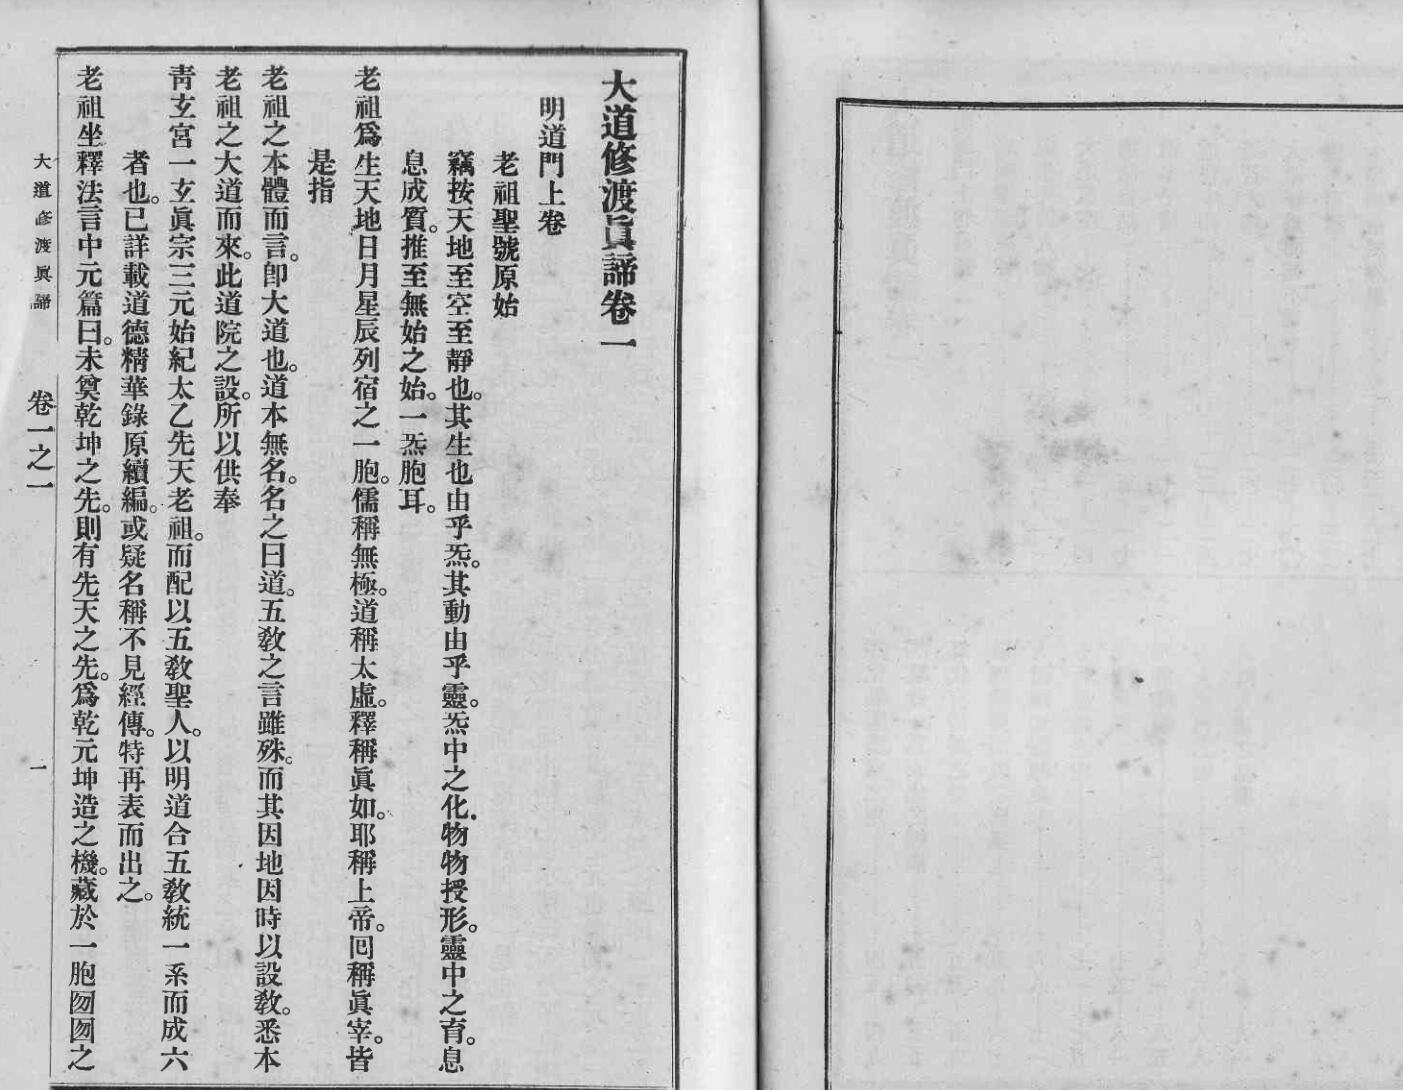 大道修渡眞諦卷一
明道門上卷
老祖聖號原始
竊按天地至空至靜也。其生也由乎炁。其動由乎靈。炁中之化。物物授形。靈中之育。息
息成質。推至無始之始。一炁胞耳。
老祖爲生天地日月星辰列宿之一胞。儒稱無極。道稱太虛。釋稱眞如。耶稱上帝。囘稱眞宰。皆
是指
老祖之本體而言。卽大道也。道本無名。名之曰道。五敎之言雖殊。而其因地因時以設敎。悉本
老祖之大道而來。此道院之設。所以供奉
靑玄宮一玄眞宗三元始紀太乙先天老祖。而配以五敎聖人。以明道合五敎統一系而成六
者也。已詳載道德精華錄原續編。或疑名稱不見經傳。特再表而出之。
老祖坐釋法言中元篇曰。未奠乾坤之先。則有先天之先。爲乾元坤造之機。藏於一胞囫囵之
大道修渡眞諦
卷一之一
一